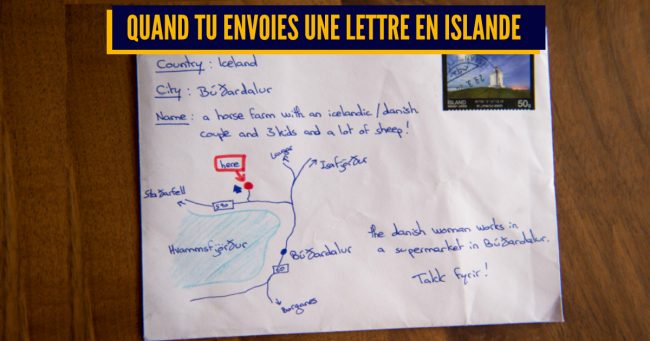 QUAND TU ENVOIES UNE LETTRE EN ISLANDE
Country : Iceland
City : Búðardalur
Name : a horse farm with an icelandic/danish
couple and 3 kids and a lot of sheep!
ÍSLAND
50g
here
Ísafjörður
Staðarfell
590
Hvammsfjörður
Búðardalur
60
Borganes
the danish woman works in
a supermarket in Búðardalur.
Takk fyrir!